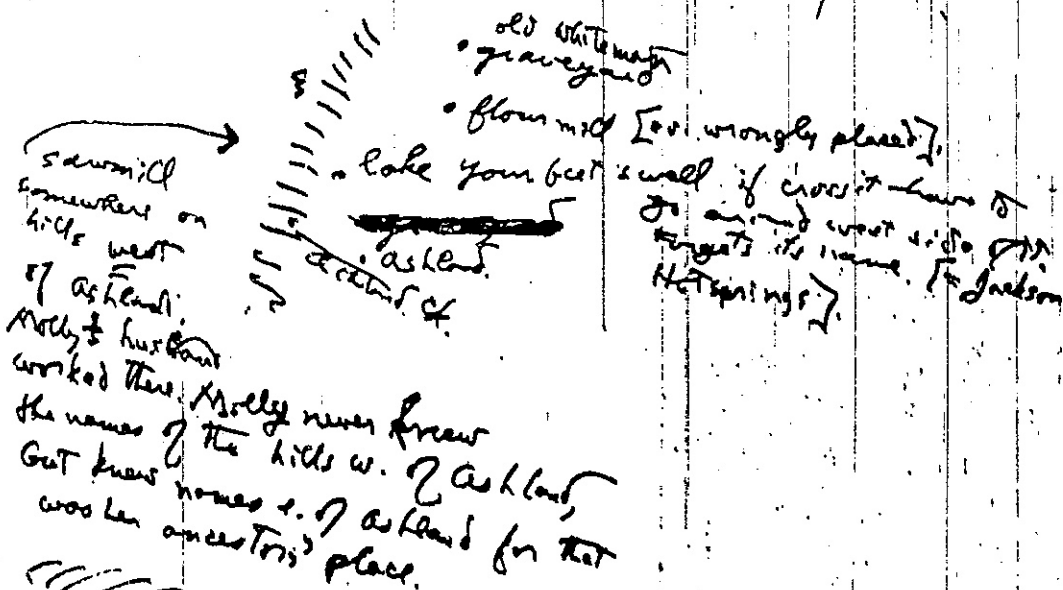 old whiteman
graveyard
flour mill [evi. wrongly placed].
lake your feet swell if cross it - have to
go around west side of it.
forgets its name. [= Jackson
Hotsprings].
ashland.
sawmill
somewhere on
hills west
of ashland.
Molly & husband
worked there. Molly never knew
the names of the hills w. of ashland,
but knew names e. of ashland for that
was her ancestors' place.